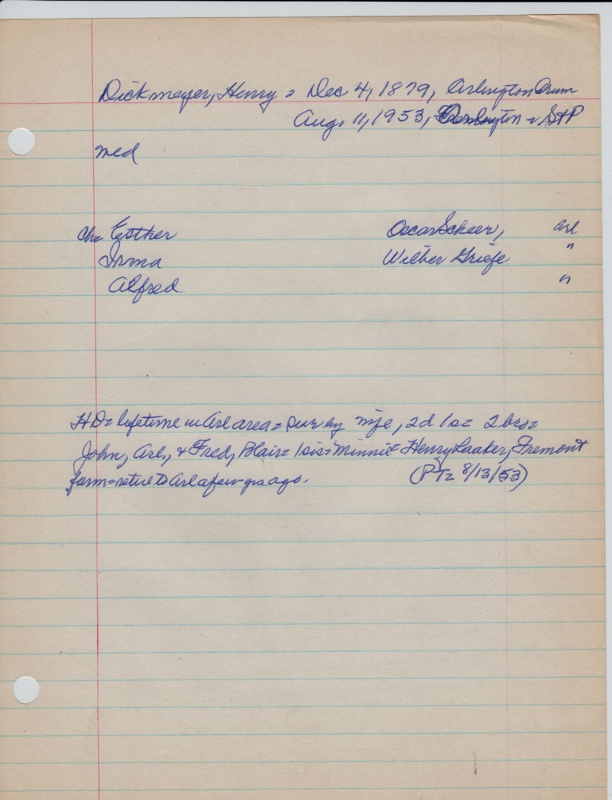 Dickmeyer, Henry = Dec 4, 1879, Arlington
Aug. 11, 1953,
med
ch = Esther Oscar Scheer, arl
Irma Wilber Griefe "
Alfred "
HD = lifetime in Arl area = sur by wife, 2d 1s = 2 bro =
John, Arl., & Fred, Blair = 1 sis = Minnie = Henry Laaker, Fremont
farm = retire to Arl a few yrs ago. (PT = 8/13/53)